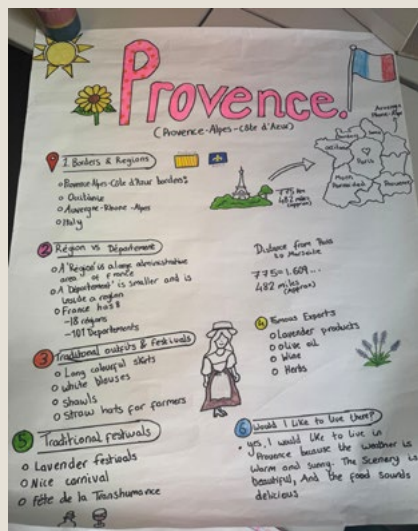 Provence.
(Provence-Alpes-Côte d'Azur)
1. Borders & Regions
Provence-Alpes-Côte d'Azur borders:
Occitanie
Auvergne-Rhone-Alpes
Italy
775 km
482 miles
(approx)
Auvergne
Rhone-Alps
Paris
Provence
2 Région vs Département
A 'Region' is a large administrative
area of France
A 'Département' is smaller and is
inside a region
France has:
-18 régions
-101 Departements
Distance from Paris
to Marseille
775÷1.609...
482 miles
(approx)
3 Traditional outfits & festivals
Long colourful skirts
white blouses
shawls
Straw hats for farmers
4 Famous Exports
Lavender products
olive oil
Wine
Herbs
5 Traditional festivals
Lavender festivals
Nice carnival
Fête de la Transhumance
6 Would I like to live there?
yes, I would like to live in
Provence because the weather is
warm and sunny. The scenery is
beautiful, And the food sounds
delicious